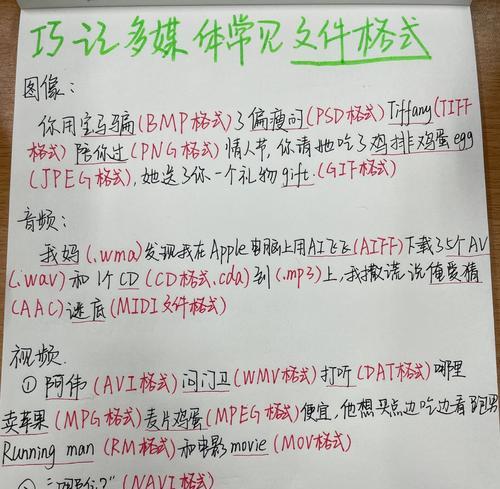 巧记多媒体常见文件格式
图像：
你用宝马骗(BMP格式)了偏瘦的(PSD格式)Tiffany(TIFF
格式)陪你过(PNG格式)情人节，你请她吃了鸡排鸡蛋egg
(JPEG格式)，她送了你一个礼物gift.(GIF格式)
音频：
我妈(.wma)发现我在Apple电脑上用AI飞飞(AIFF)下载了5个AV
(.wav)和1个CD(CD格式.cda)到(.mp3)上，我撒谎说俺爱猜
(AAC)谜底(MIDI文件格式)
视频.
①阿伟(AVI格式)问门卫(WMV格式)打听(DAT格式)哪里
卖苹果(MPG格式)麦片鸡蛋(MPEG格式)便宜，他想买点边吃边看
Running man(RM格式)和电影movie(MOV格式)
(NAVI格式)